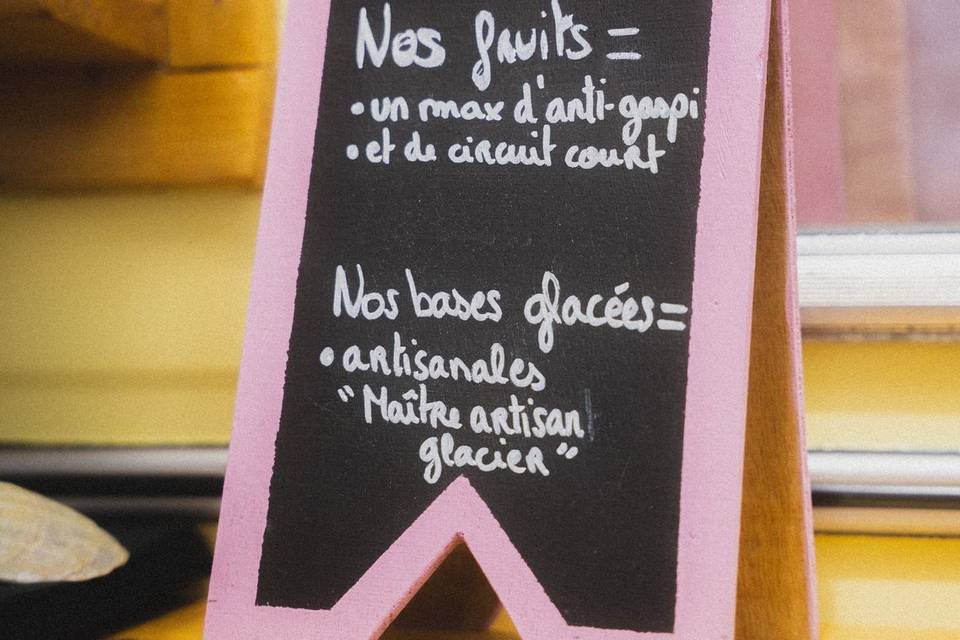 Nos fruits =
• un max d'anti-gaspi
• et de circuit court
Nos bases glacées =
• artisanales
"Maître artisan
glacier"